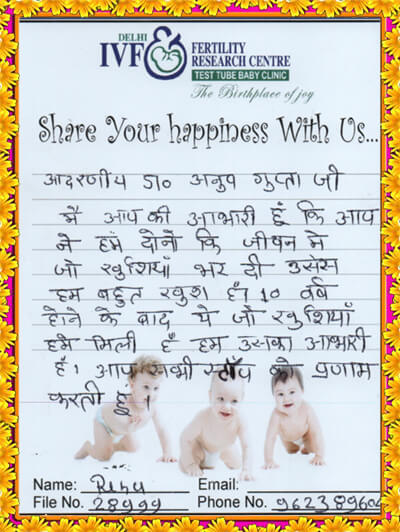 DELHI
IVF & FERTILITY
RESEARCH CENTRE
TEST TUBE BABY CLINIC
The Birthplace of joy
Share Your happiness With Us...
आदरणीय डा० अनुप गुप्ता जी
मैं आप की आभारी हूँ कि आप
ने हमें दोनों कि जीवन मे
जो खुशियाँ भर दी उससे
हम बहुत खुश हैं। 10 वर्ष
होने के बाद ये जो खुशियाँ
हमें मिली हैं हम उसका आभारी
हैं। आप सभी स्टॉप को प्रणाम
करती हूँ।
Name: Renu Email:
File No. 28999 Phone No.